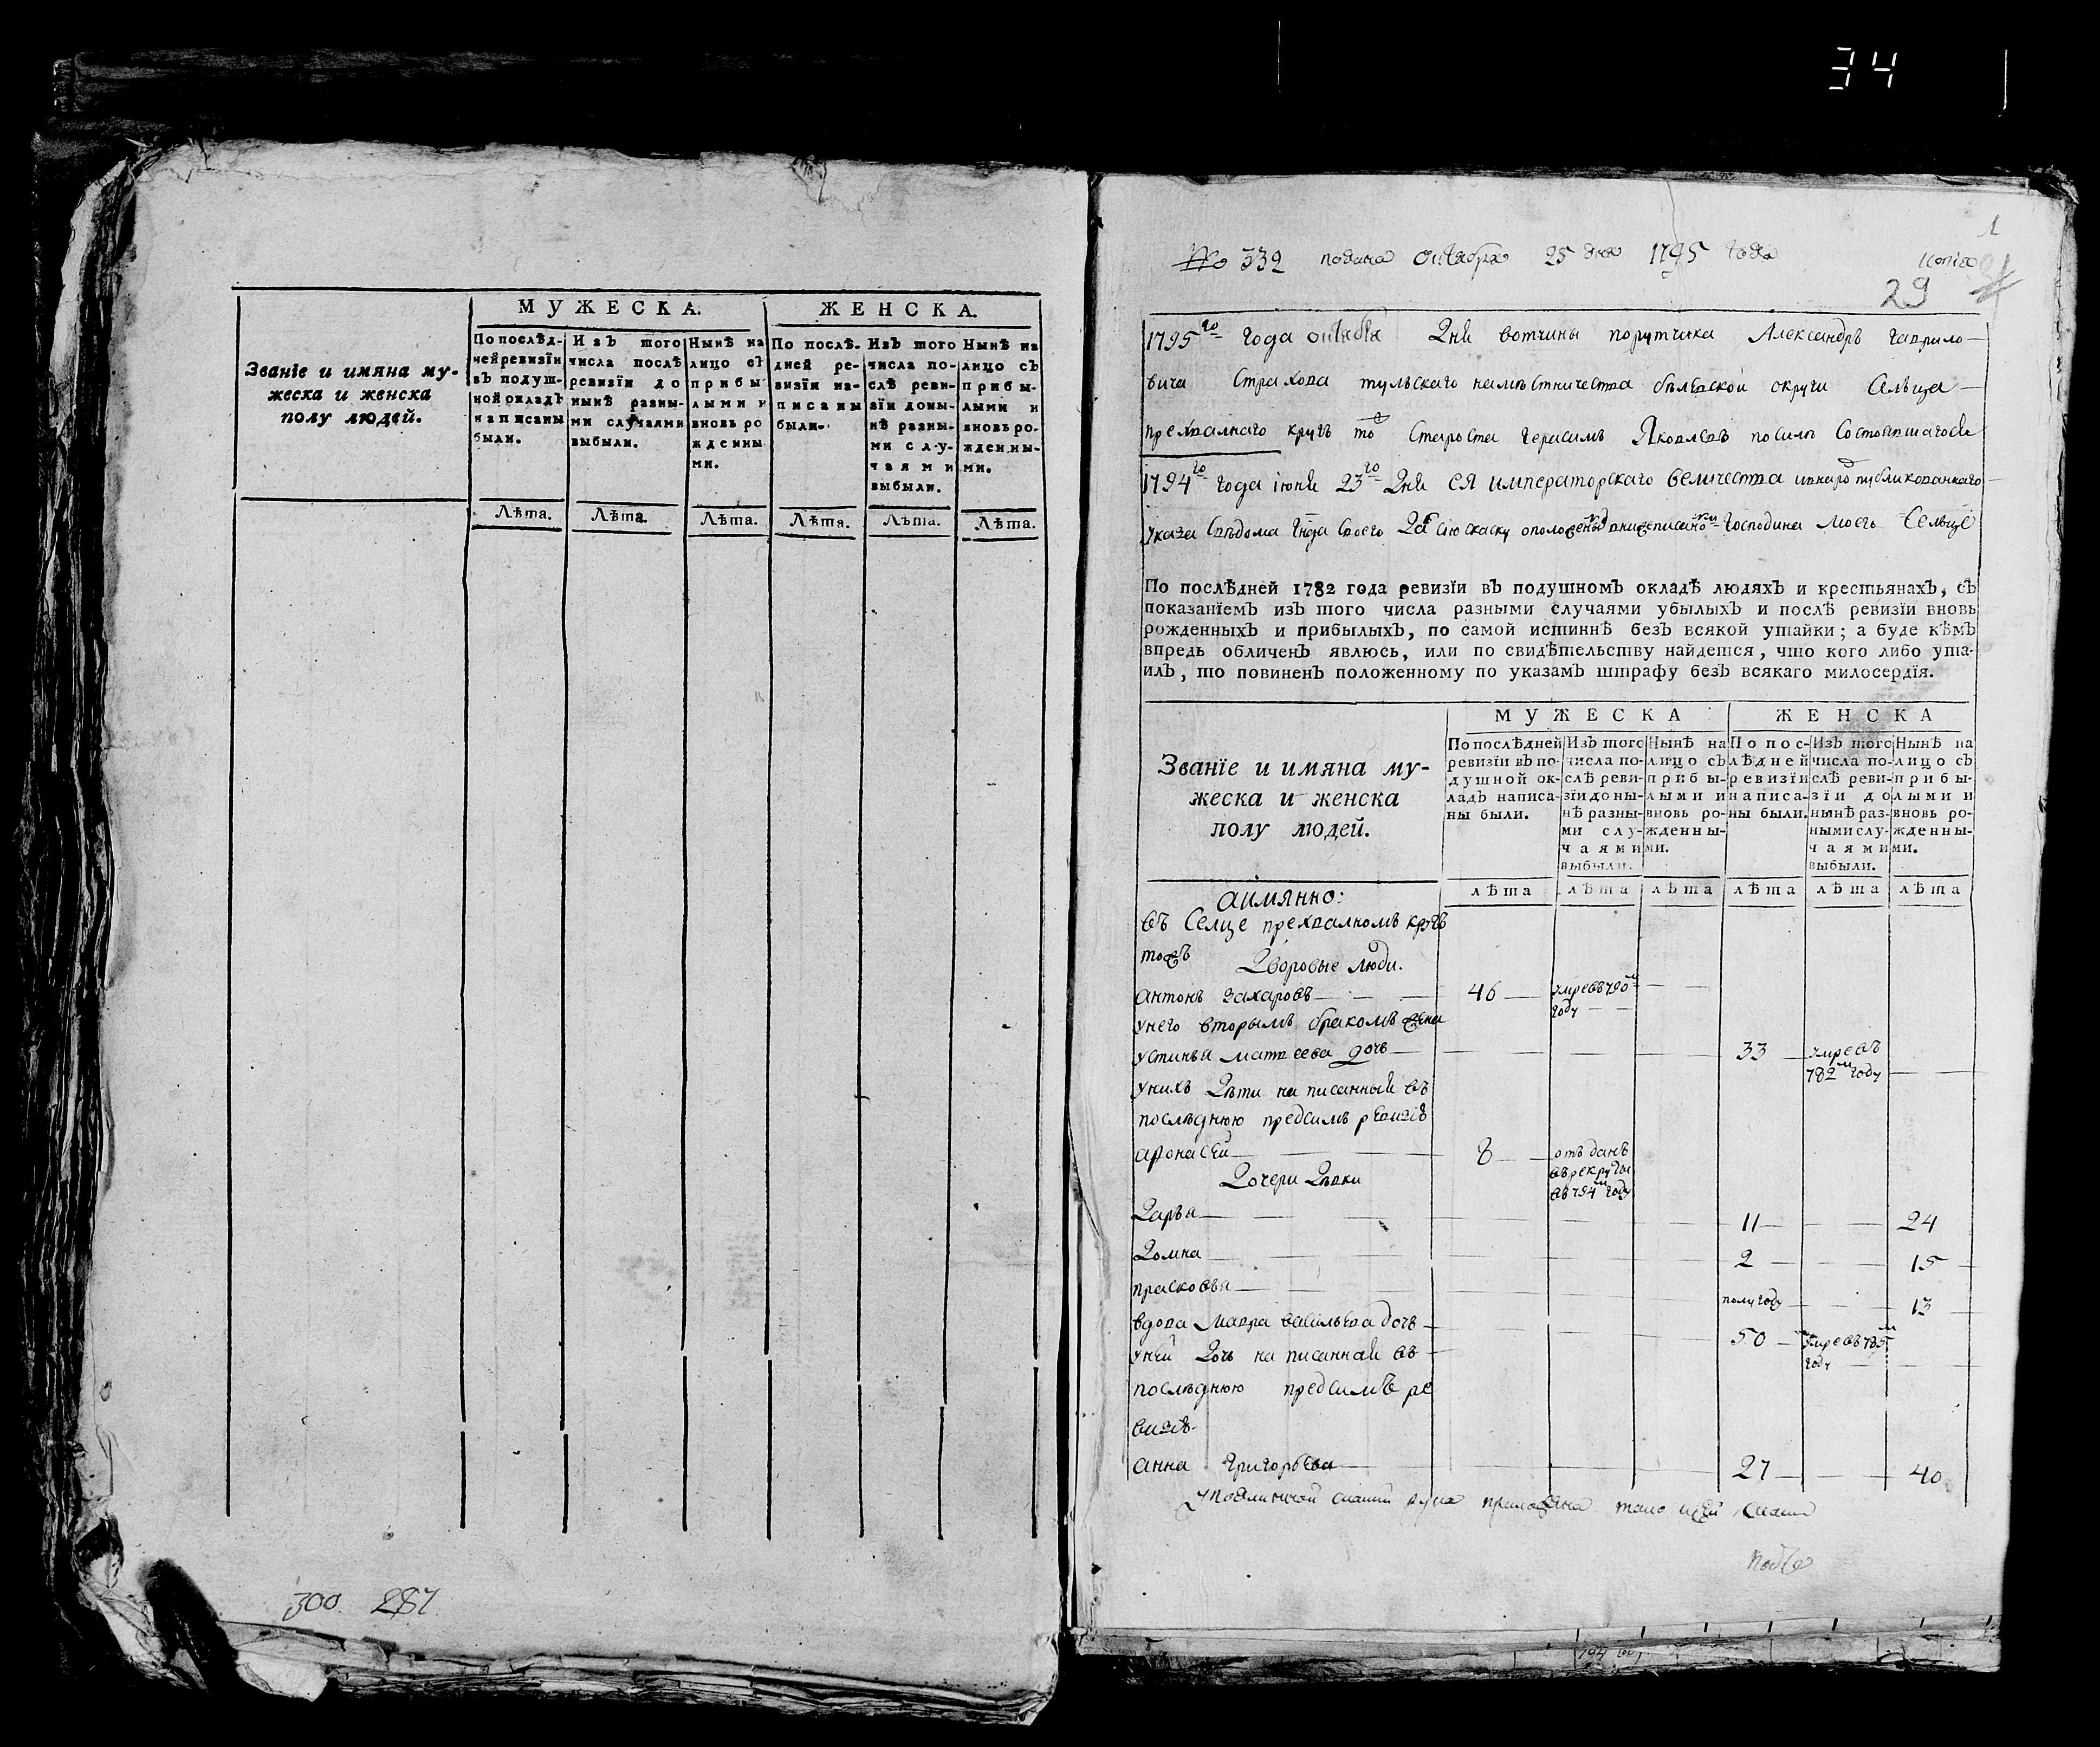 34
МУЖЕСКА. ЖЕНСКА.
Званїе и имяна му-
жеска и женска
полу людей.
По послѣд-
ней ревизїи
въ подуш-
ной окладъ
написаны
были.
Изъ того
числа послѣ
ревизїи до
нынѣ разны-
ми случаями
выбыли.
Нынѣ на
лицо съ
прибы
лыми и
вновь ро
жденны
ми.
По послѣ-
дней ре-
визїи на-
писаны
были.
Изъ того
числа по-
слѣ реви-
зїи доны-
нѣ разны-
ми слу-
чаями
выбыли.
Нынѣ на
лицо съ
прибы-
лыми и
вновь ро-
жденны-
ми.
Лѣта. Лѣта. Лѣта. Лѣта. Лѣта. Лѣта.
300 287
1
№ 332 подана октября 25 дня 1795 года копія
29
1795го года октября дня вотчины порутчика Александръ гаврило
вича Страхова тульскаго наместничества бѣлевской округи сельца
прехвалнаго кругъ то ж староста герасимъ Яковлевъ посилѣ состоявшагося
1794го года іюня 23го дня ея императорскаго величества и в народ публикованнаго
указа своего даю сию скаску о положеных господина моего селце
По послѣдней 1782 года ревизїи въ подушномъ окладѣ людяхъ и крестьянахъ, съ
показанїемъ изъ того числа разными случаями убылыхъ и послѣ ревизїи вновь
рожденныхъ и прибылыхъ, по самой истиннѣ безъ всякой утайки; а буде кѣмъ
впредь обличенъ явлюсь, или по свидѣтельству найдется, что кого либо ута-
илъ, то повиненъ положенному по указамъ штрафу безъ всякаго милосердїя.
МУЖЕСКА ЖЕНСКА
Званїе и имяна му-
жеска и женска
полу людей.
По послѣдней
ревизїи въ по-
душной ок-
ладъ написа-
ны были.
Изъ того
числа по-
слѣ реви-
зїи доны-
нѣ разны-
ми слу-
чаями
выбыли.
Нынѣ на
лицо съ
прибы-
лыми и
вновь ро-
жденны-
ми.
По пос-
лѣдней
ревизїи
написа-
ны были.
Изъ того
числа по-
слѣ реви-
зїи до
нынѣ раз-
ными слу-
чаями
выбыли.
Нынѣ на
лицо съ
прибы-
лыми и
вновь ро-
жденны-
ми.
лѣта лѣта лѣта лѣта лѣта лѣта
аимянно:
въ селце прехвалномъ кругъ
тожъ дворовые люди.
антонъ захаровъ 46 умре въ 790м
году
унего вторымъ бракомъ жена
устинья матвеева дочь 33 умре въ
782м году
унихъ дѣти написанныя въ
последнюю предсимъ ревизіѣ
афонасей 8 отъ данъ
въ рекруты
въ 794м году
дочери дѣвки
дарья 11 24
домна 2 15
прасковья полугоду 13
вдова мавра васильева дочь 50 умре въ 785м
году
уней дочь написанная въ
последнюю предсимъ ре
визіѣ
анна григорьева 27 40
уподлинной скаски рука приложена тако